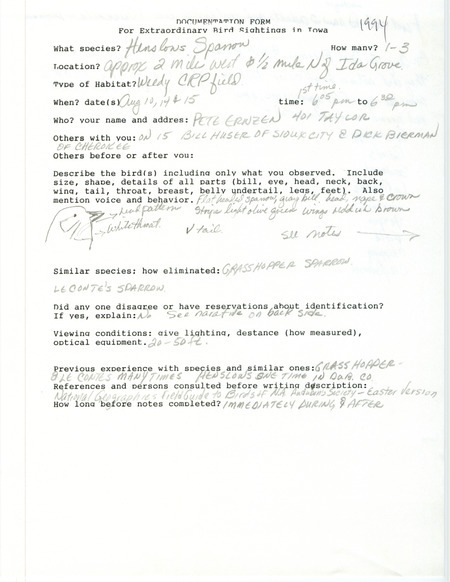 1994
DOCUMENTATION FORM
For Extraordinary Bird Sightings in Iowa
What species? Henslows Sparrow How many? 1-3
Location? approx 2 mile west & 1/2 mile N of Ida Grove
Type of Habitat? Weedy CRP field
1st time
When? date(s) Aug 10, 14 & 15 time: 6:05 pm to 6:30 pm
Who? your name and addres: PETE ERNZEN 401 TAYLOR
Others with you: ON 15 BILL HUSER OF SIOUX CITY & DICK BIERMAN
OF CHEROKEE
Others before or after you:
Describe the bird(s) including only what you observed. Include
size, shape, details of all parts (bill, eye, head, neck, back,
wing, tail, throat, breast, belly undertail, legs, feet). Also
mention voice and behavior. Flat headed sparrow, gray bill, head, nape & crown
stripe light olive green wings reddish brown
pattern
white throat
V tail
see notes
Similar species; how eliminated: GRASSHOPPER SPARROW
LE CONTE'S SPARROW
Did any one disagree or have reservations about identification?
If yes, explain: No See narrative on back side.
Viewing conditions: give lighting, destance (how measured),
optical equipment. 20-50 ft.
Previous experience with species and similar ones: GRASSHOPPER-
& LE CONTES MANY TIMES HENSLOWS ONE TIME IN CO
References and persons consulted before writing description:
National Geographics Field Guide to Birds of N.A. Audubons Society - Easter Version
How long before notes completed? IMMEDIATELY DURING & AFTER